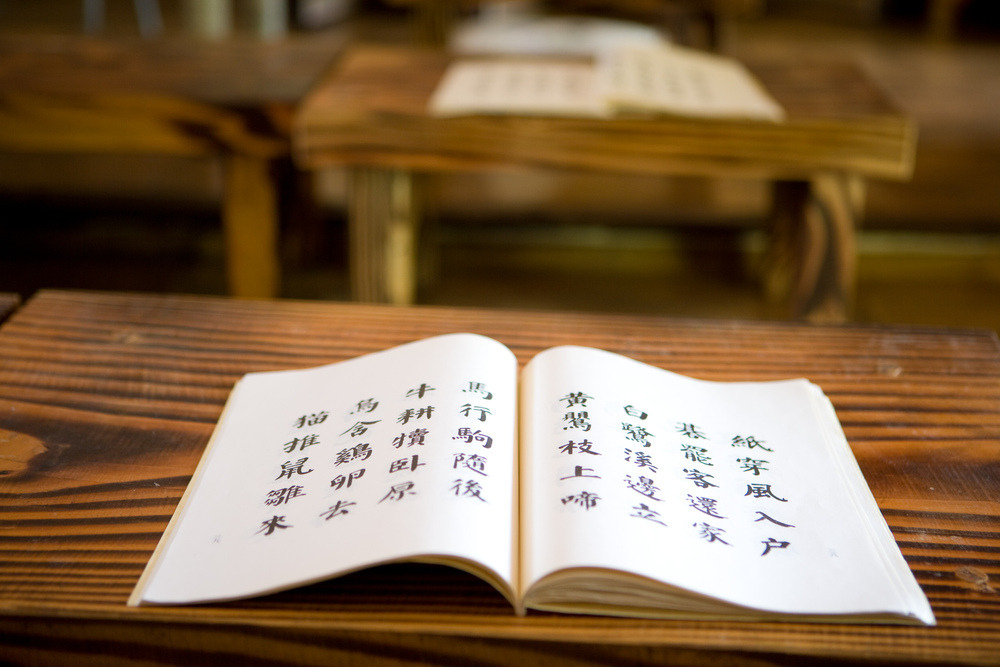 紙穿風入户
碁罷客還家
白鷺溪邊立
黃鸎枝上啼
馬行駒隨後
牛耕犢臥原
烏含鷄卵去
猫推鼠雛來